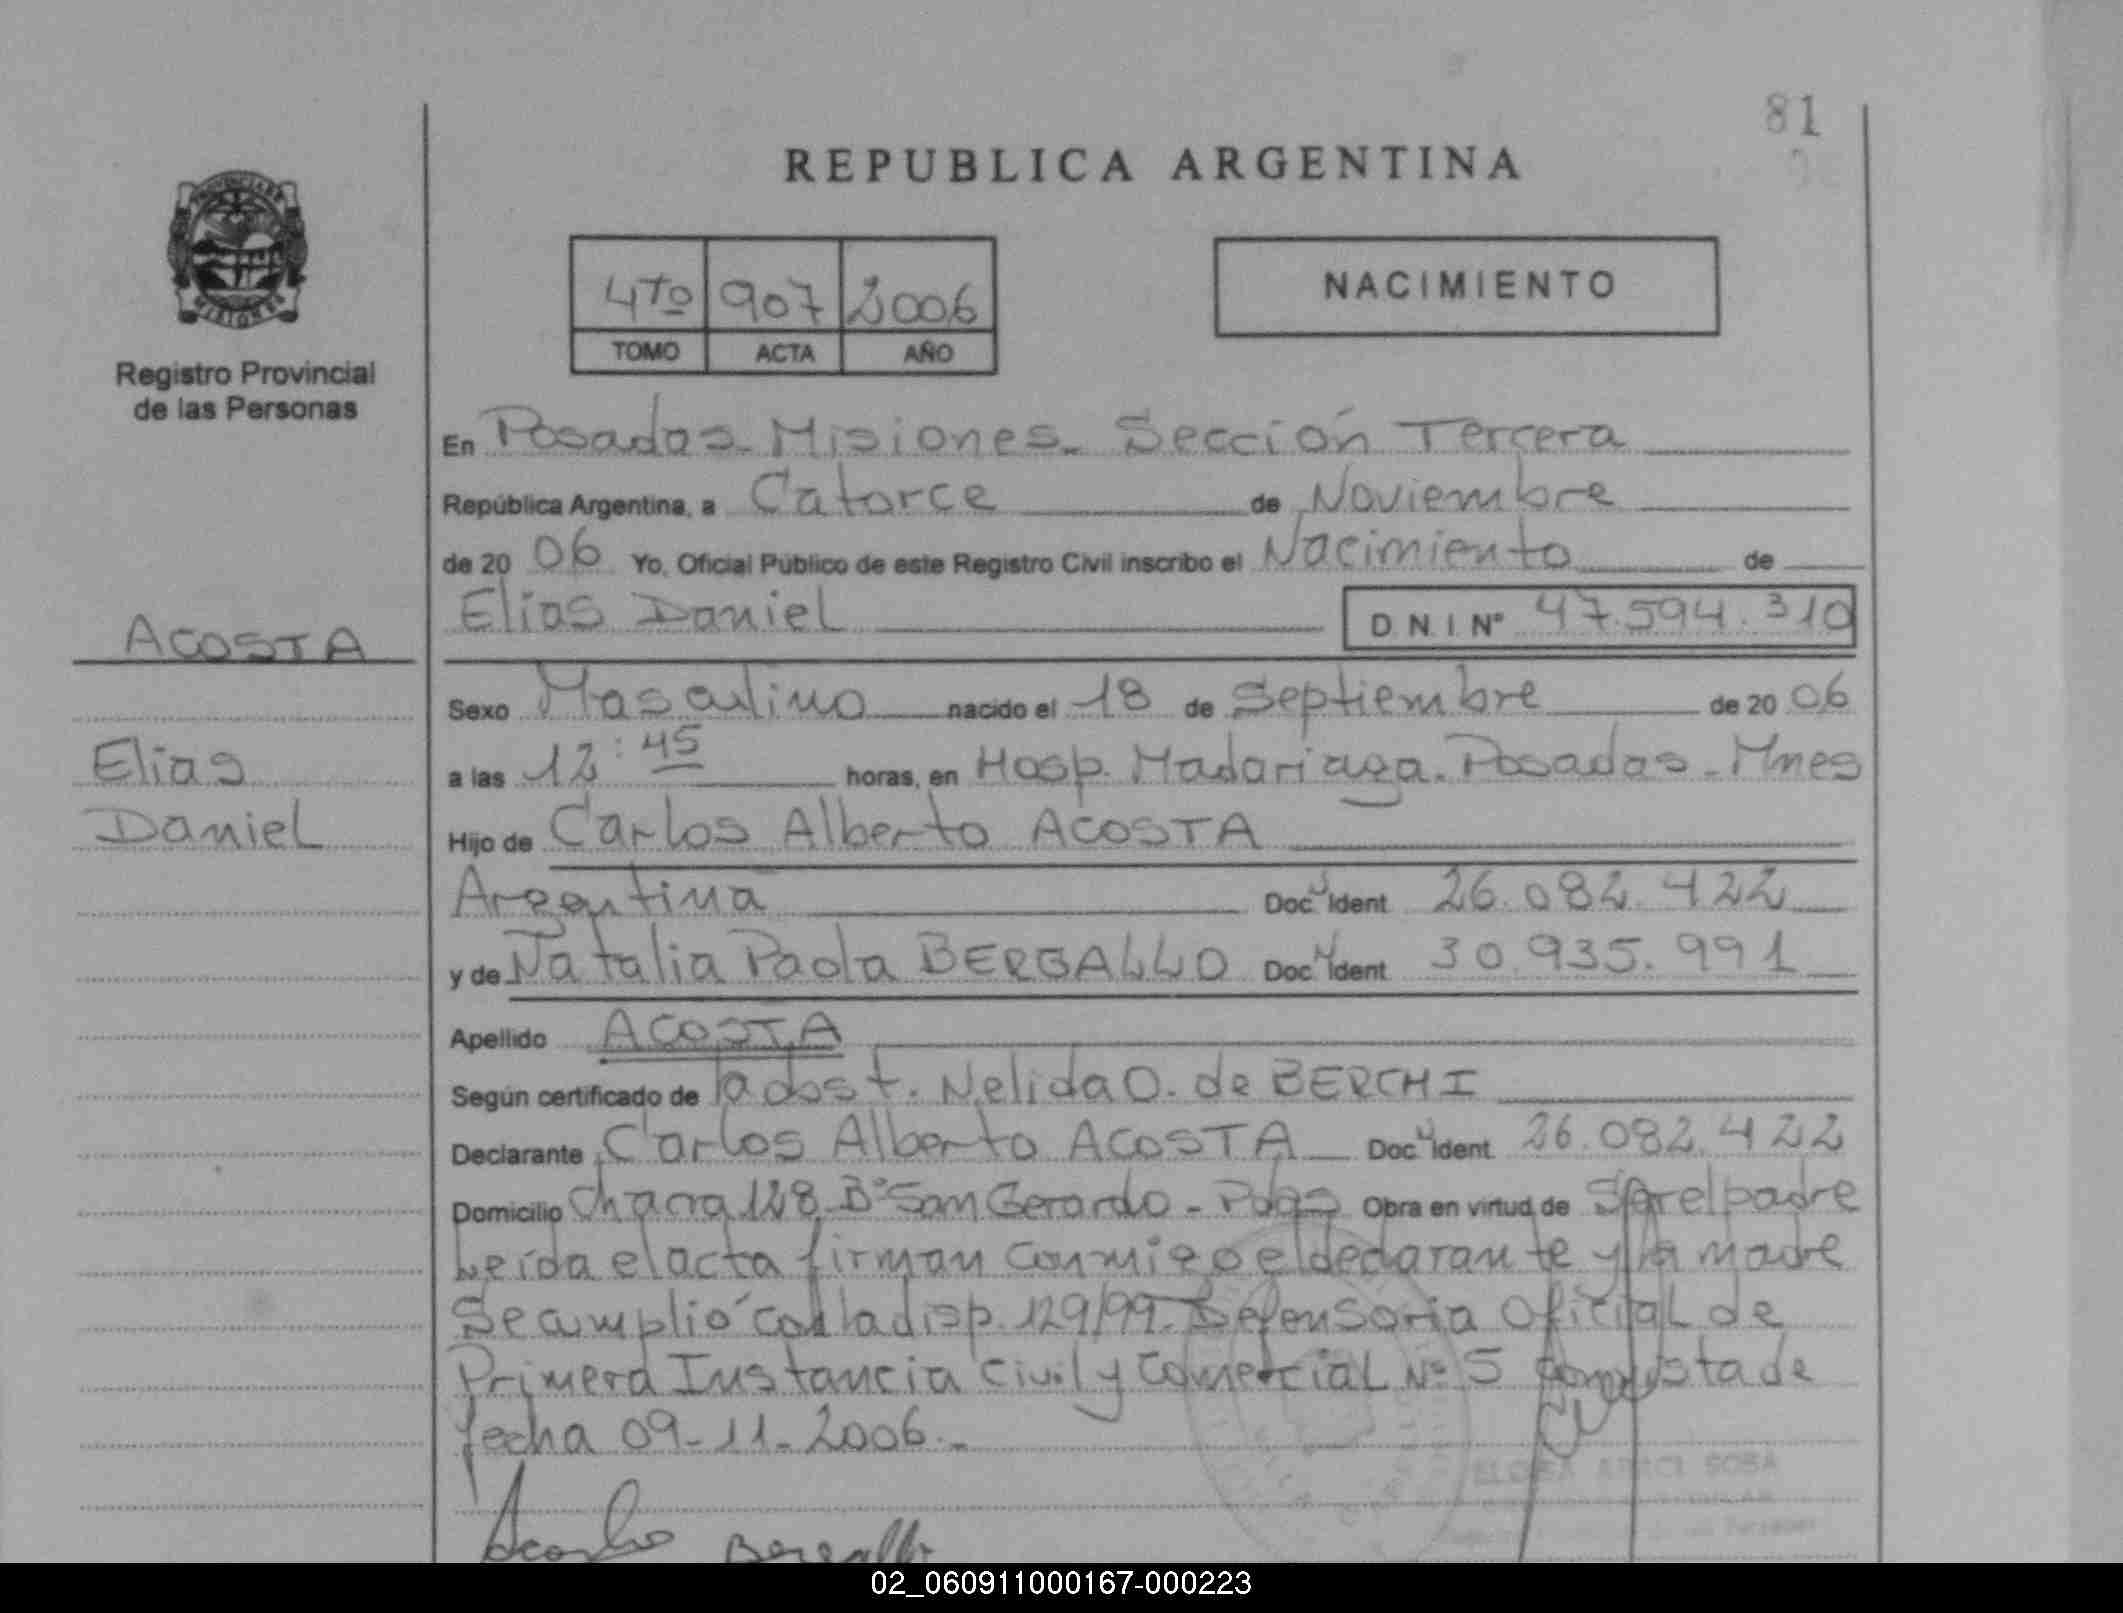 81
REPUBLICA ARGENTINA
PROVINCIA DE
MISIONES
Registro Provincial
de las Personas
4to 907 2006
TOMO ACTA AÑO
NACIMIENTO
En Posadas - Misiones - Sección Tercera
República Argentina, a Catorce de Noviembre
de 20 06 Yo, Oficial Público de este Registro Civil inscribo el Nacimiento de
Elias Daniel D.N.I. Nº 47.594.310
ACOSTA
Elias
Daniel
Sexo Masculino nacido el 18 de Septiembre de 20 06
a las 12:45 horas, en Hosp. Madariaga. Posadas - Mnes
Hijo de Carlos Alberto ACOSTA
Argentina Doc. Ident 26.082.422
y de Natalia Paola BERGALLO Doc. Ident 30.935.991
Apellido ACOSTA
Según certificado de Nelida O. de BERCHI
Declarante Carlos Alberto ACOSTA Doc. Ident 26.082.422
Domicilio Chacra 128 Bº San Gerardo - Pdas Obra en virtud de Ser el padre
Leída el acta firman conmigo el declarante y la madre
Se cumplió con la disp. 129/99. Defensoria Oficial de
Primera Instancia Civil y Comercial Nº 5 de
fecha 09-11-2006.-
Acosta Bergallo
SOSA
02_060911000167-000223